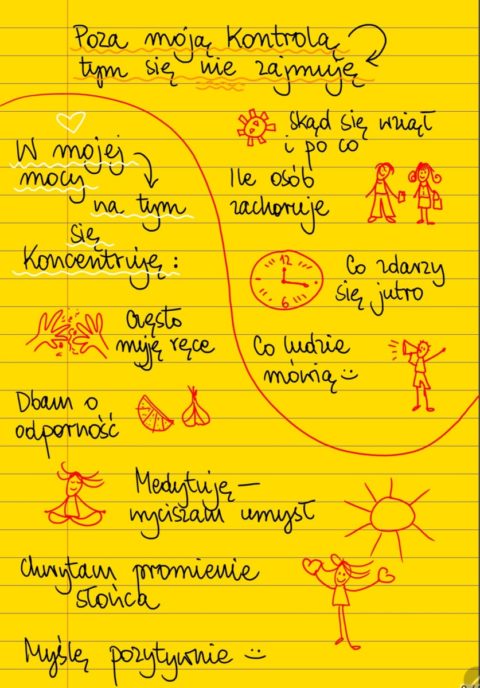 Poza moją kontrolą
tym się nie zajmuję
Skąd się wziął
i po co
Ile osób
zachoruje
12
3
6
Co zdarzy
się jutro
Co ludzie
mówią :)
W mojej
mocy
na tym
się
koncentruję:
Często
myję ręce
Dbam o
odporność
Medytuję –
wyciszam umysł
Chwytam promienie
słońca
Myślę pozytywnie :)